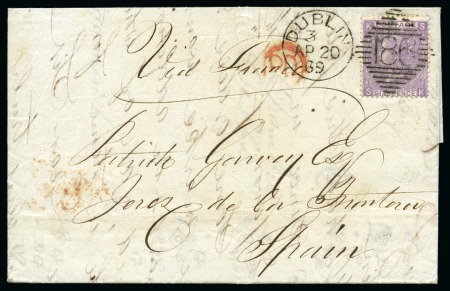 DUBLIN
3
AP 20
69
186
S K
SIX PENCE
PD
Via France
Patrick Garvey Esq
Jerez de la Frontera
Spain